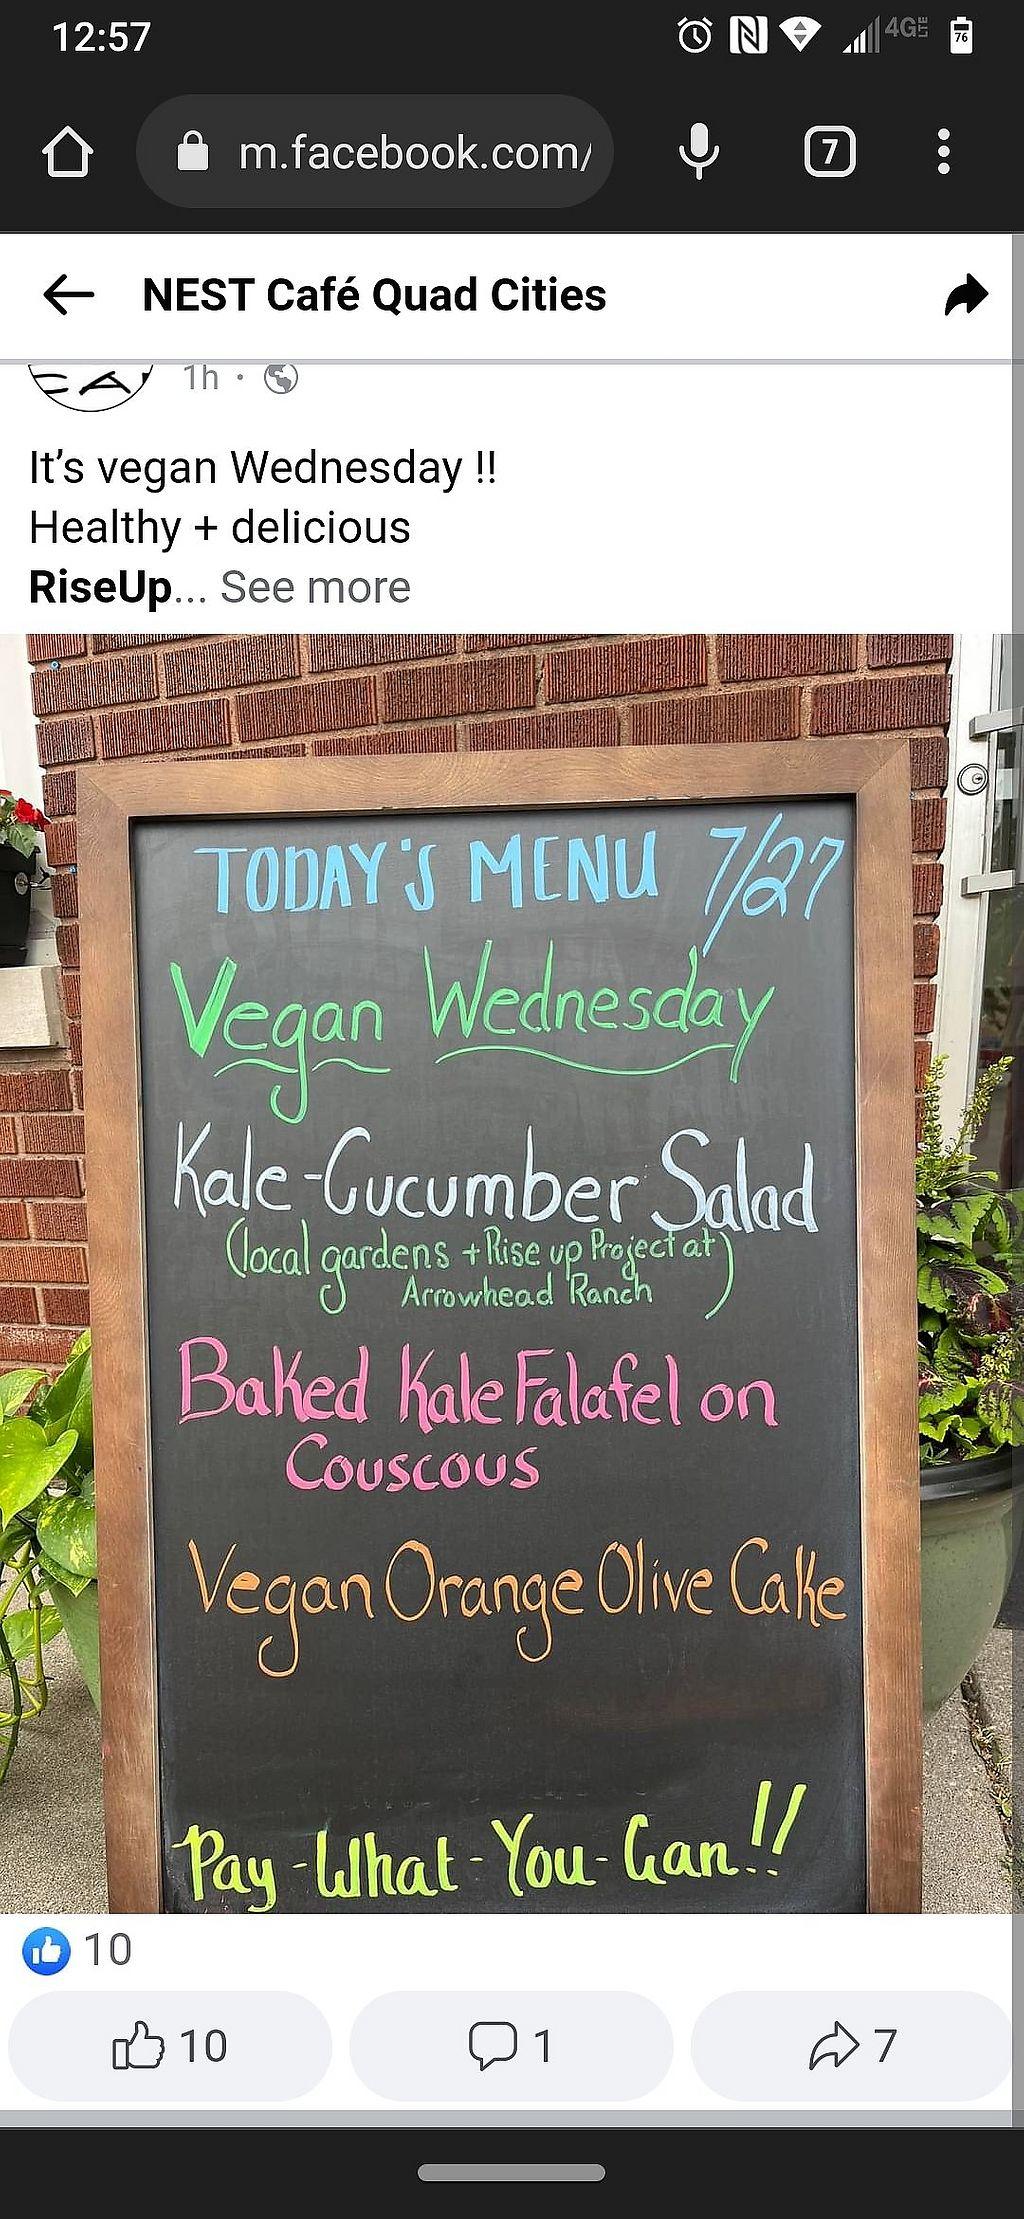 12:57
4G LTE
76
m.facebook.com/
7
NEST Café Quad Cities
EA
1h ·
It's vegan Wednesday !!
Healthy + delicious
RiseUp... See more
TODAY'S MENU 7/27
Vegan Wednesday
Kale-Cucumber Salad
(local gardens + Rise up Project at
Arrowhead Ranch)
Baked Kale Falafel on
Couscous
Vegan Orange Olive Cake
Pay-What-You-Can!!
10
10
1
7